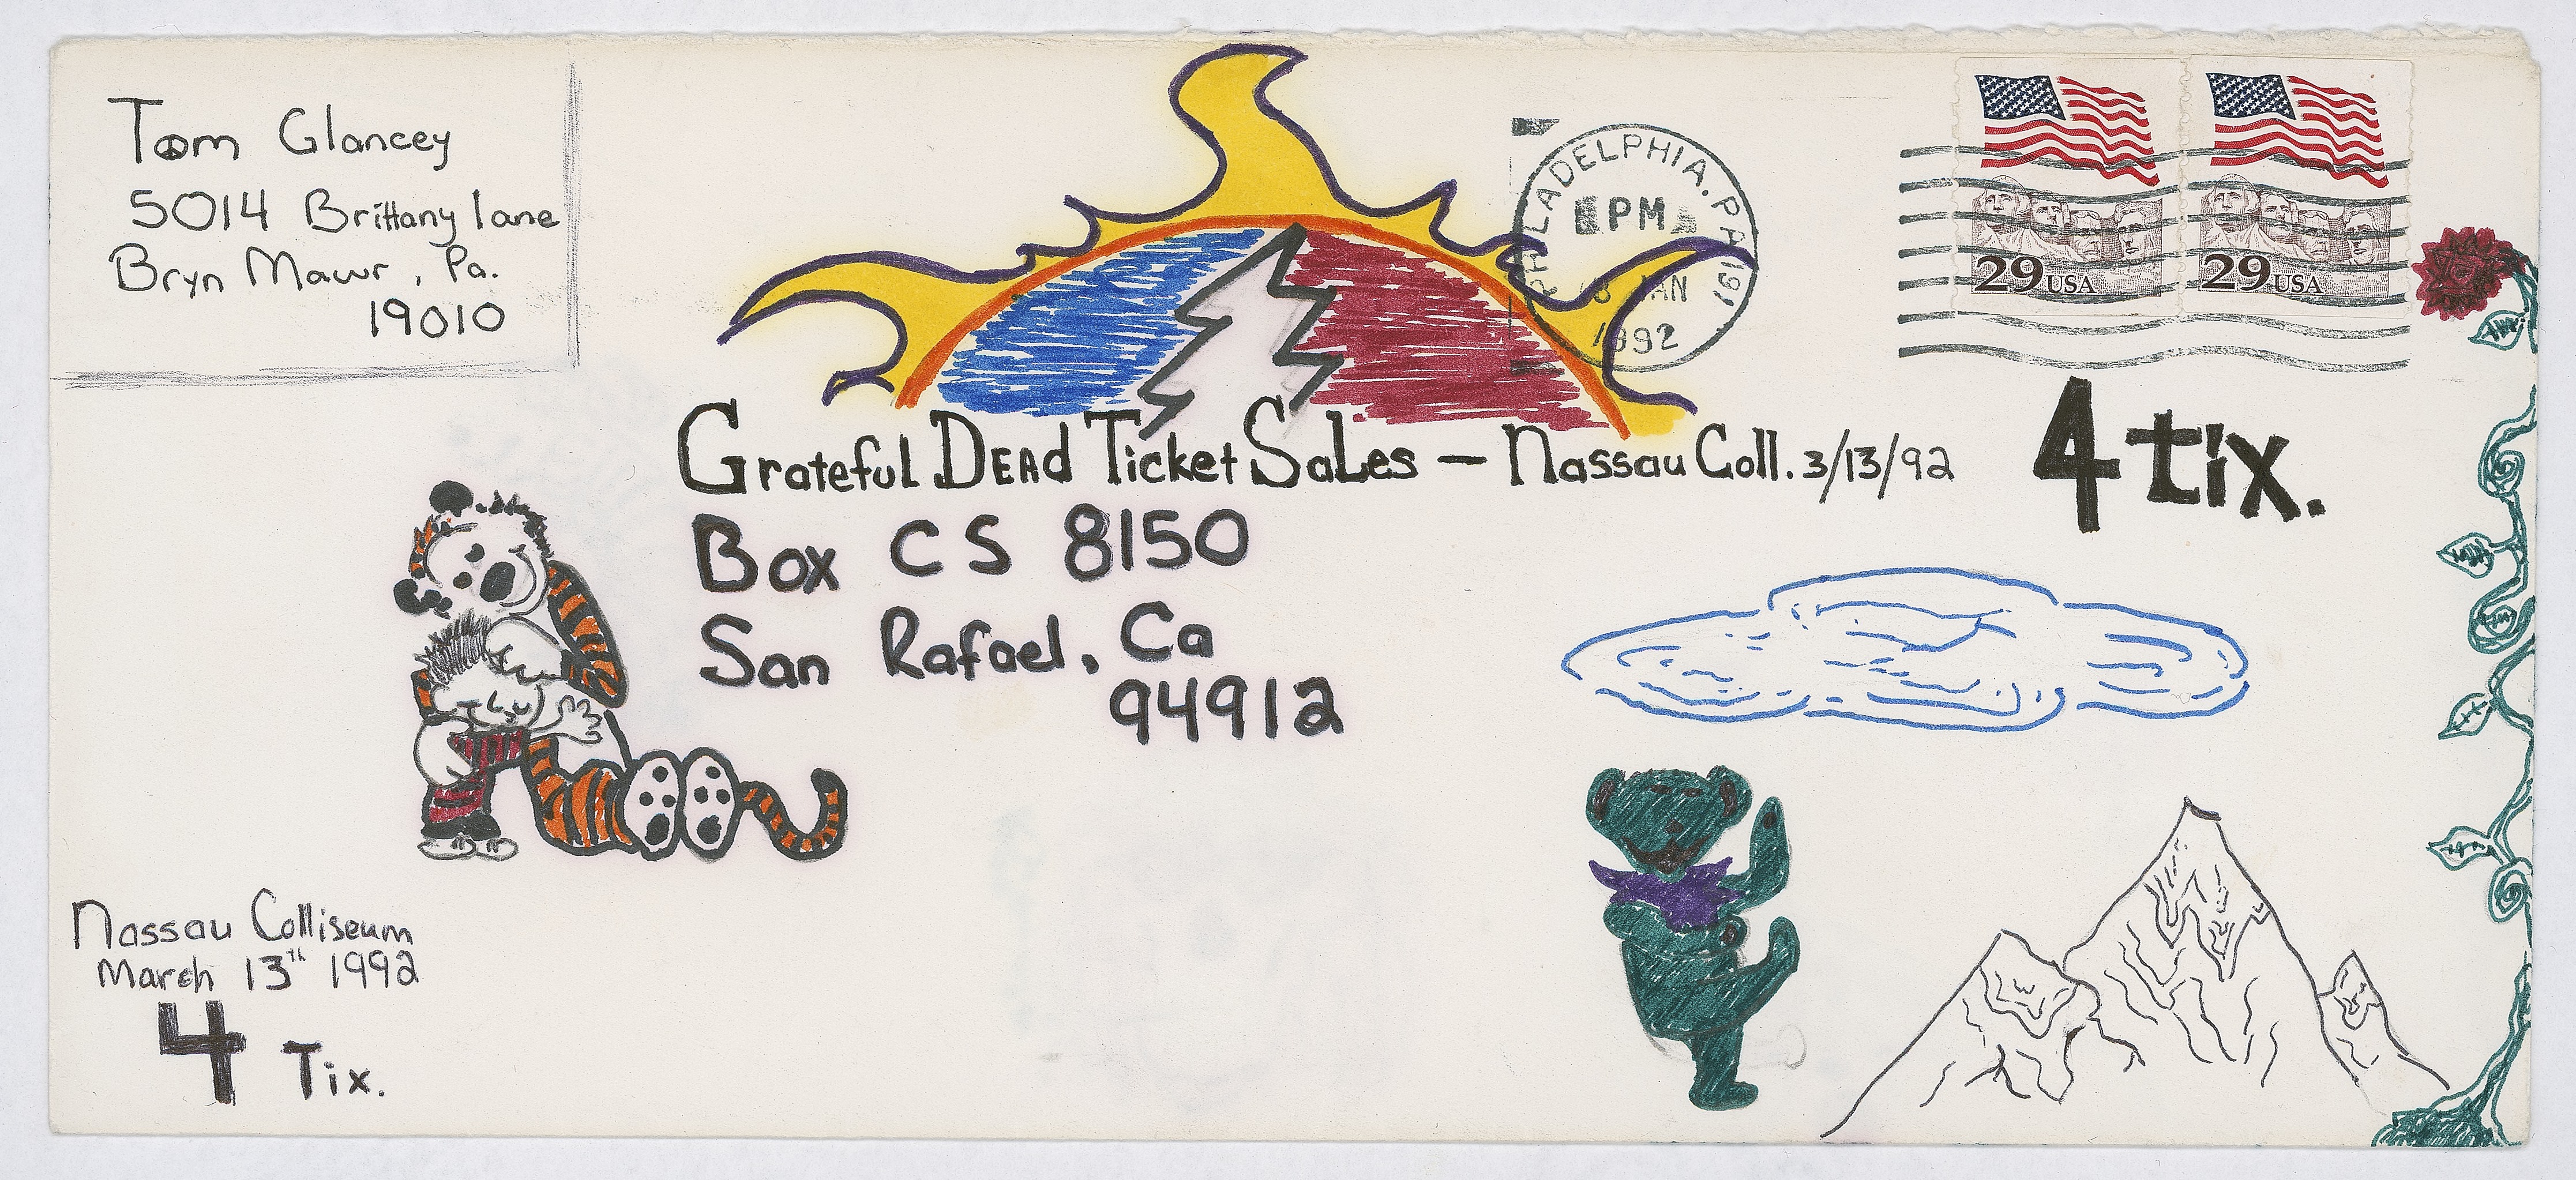 Tom Glancey
5014 Brittany lane
Bryn Mawr, Pa.
19010
PHILADELPHIA, PA 191
PM
JAN
1992
29 USA
29 USA
Grateful DEAd Ticket SaLes – Nassau Coll. 3/13/92
4 tix.
Box CS 8150
San Rafael, Ca
94912
Nassau Colliseum
March 13th 1992
4 Tix.